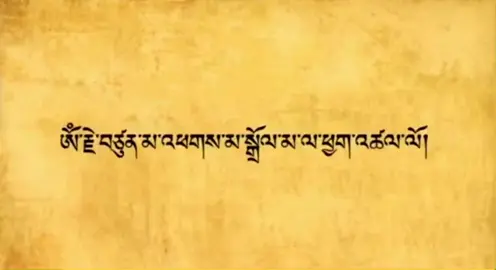 ཨོཾ་རྗེ་བཙུན་མ་འཕགས་མ་སྒྲོལ་མ་ལ་ཕྱག་འཚལ་ལོ།